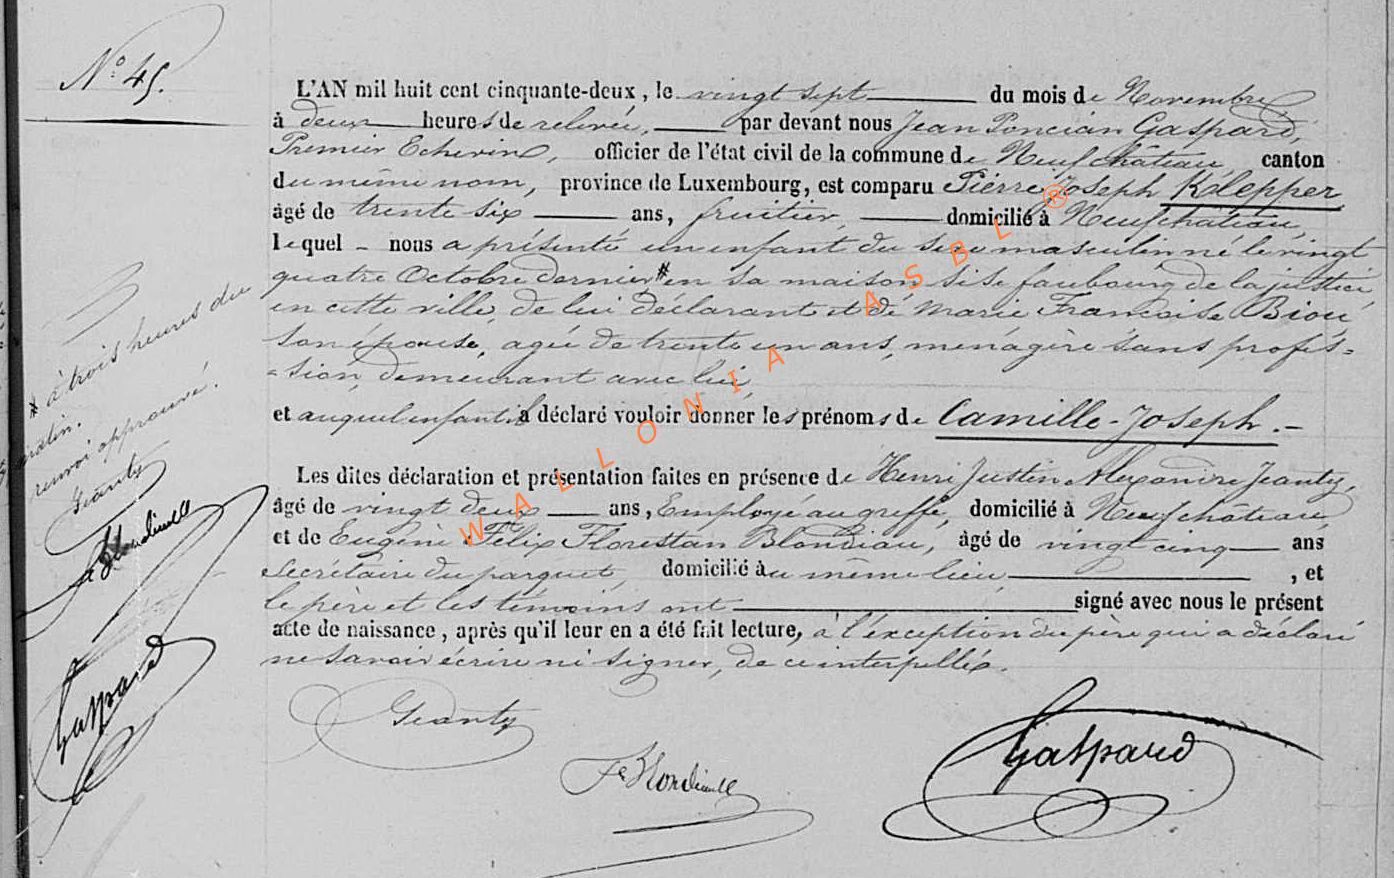 N° 45.
L'AN mil huit cent cinquante-deux, le vingt sept du mois de Novembre
à deux heures de relevée, par devant nous Jean Poncian Gaspard,
Premier Echevin, officier de l'état civil de la commune de Neufchâteau canton
du même nom, province de Luxembourg, est comparu Pierre Joseph Kölepper
âgé de trente six ans, fruitier, domicilié à Neufchâteau,
lequel - nous a présenté un enfant du sexe masculin né le vingt
quatre Octobre dernier * en sa maison sise faubourg de la justice
en cette ville, de lui déclarant et de Marie Françoise Biou
son épouse, agée de trente un ans, ménagère sans profes=
=sion, demeurant avec lui,
et auquel enfant il a déclaré vouloir donner les prénoms de Camille-Joseph.-
Les dites déclaration et présentation faites en présence de Henri Justin Alexandre Jeanty,
âgé de vingt deux ans, Employé au greffe, domicilié à Neufchâteau,
et de Eugène Félix Florestan Blondiau, âgé de vingt cinq ans
Secrétaire du parquet, domicilié au même lieu, et
le père et les témoins ont signé avec nous le présent
acte de naissance, après qu'il leur en a été fait lecture, à l'exception du père qui a déclaré
ne savoir écrire ni signer, de ce interpellé.
* à trois heures du
matin.
renvoi approuvé.
Jeanty
Gaspard
Jeanty
Gaspard
WALLONIA ASBL ®